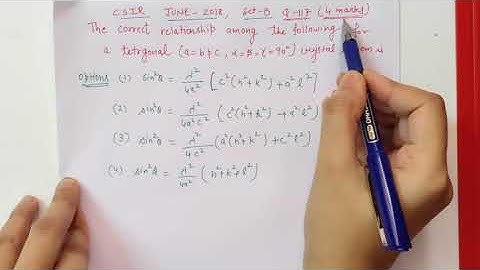 CSIR JUNE-2018, Set-B Q-117 (4 marks)
The correct relationship among the following for
a tetragonal (a=b≠c, α=β=γ=90°) crystal is
Options (1) sin²θ = λ²/4a² [c²(h²+k²)+a²l²]
(2) sin²θ = λ²/4a²c² (c²(h²+k²)+a²l²)
(3) sin²θ = λ²/4c² (a²(h²+k²)+c²l²)
(4) sin²θ = λ²/4a² (h²+k²+l²)